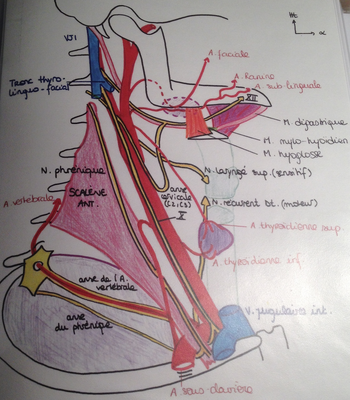 Ht
VJI
A. faciale
A. Ranine
A. sub-linguale
Tronc thyro-
linguo-facial
XII
M. digastrique
M. mylo-hyoïdien
M. hyoglosse
N. phrénique
N. laryngé sup. (sensitif)
A. vertébrale
SCALÈNE
ANT.
anse
cervicale
(C2, C3)
X
N. récurrent dt. (moteur)
A. thyroïdienne sup.
A. thyroïdienne inf.
anse de l'A.
vertébrale
anse
du phrénique
V. jugulaire int.
A. sous-clavière